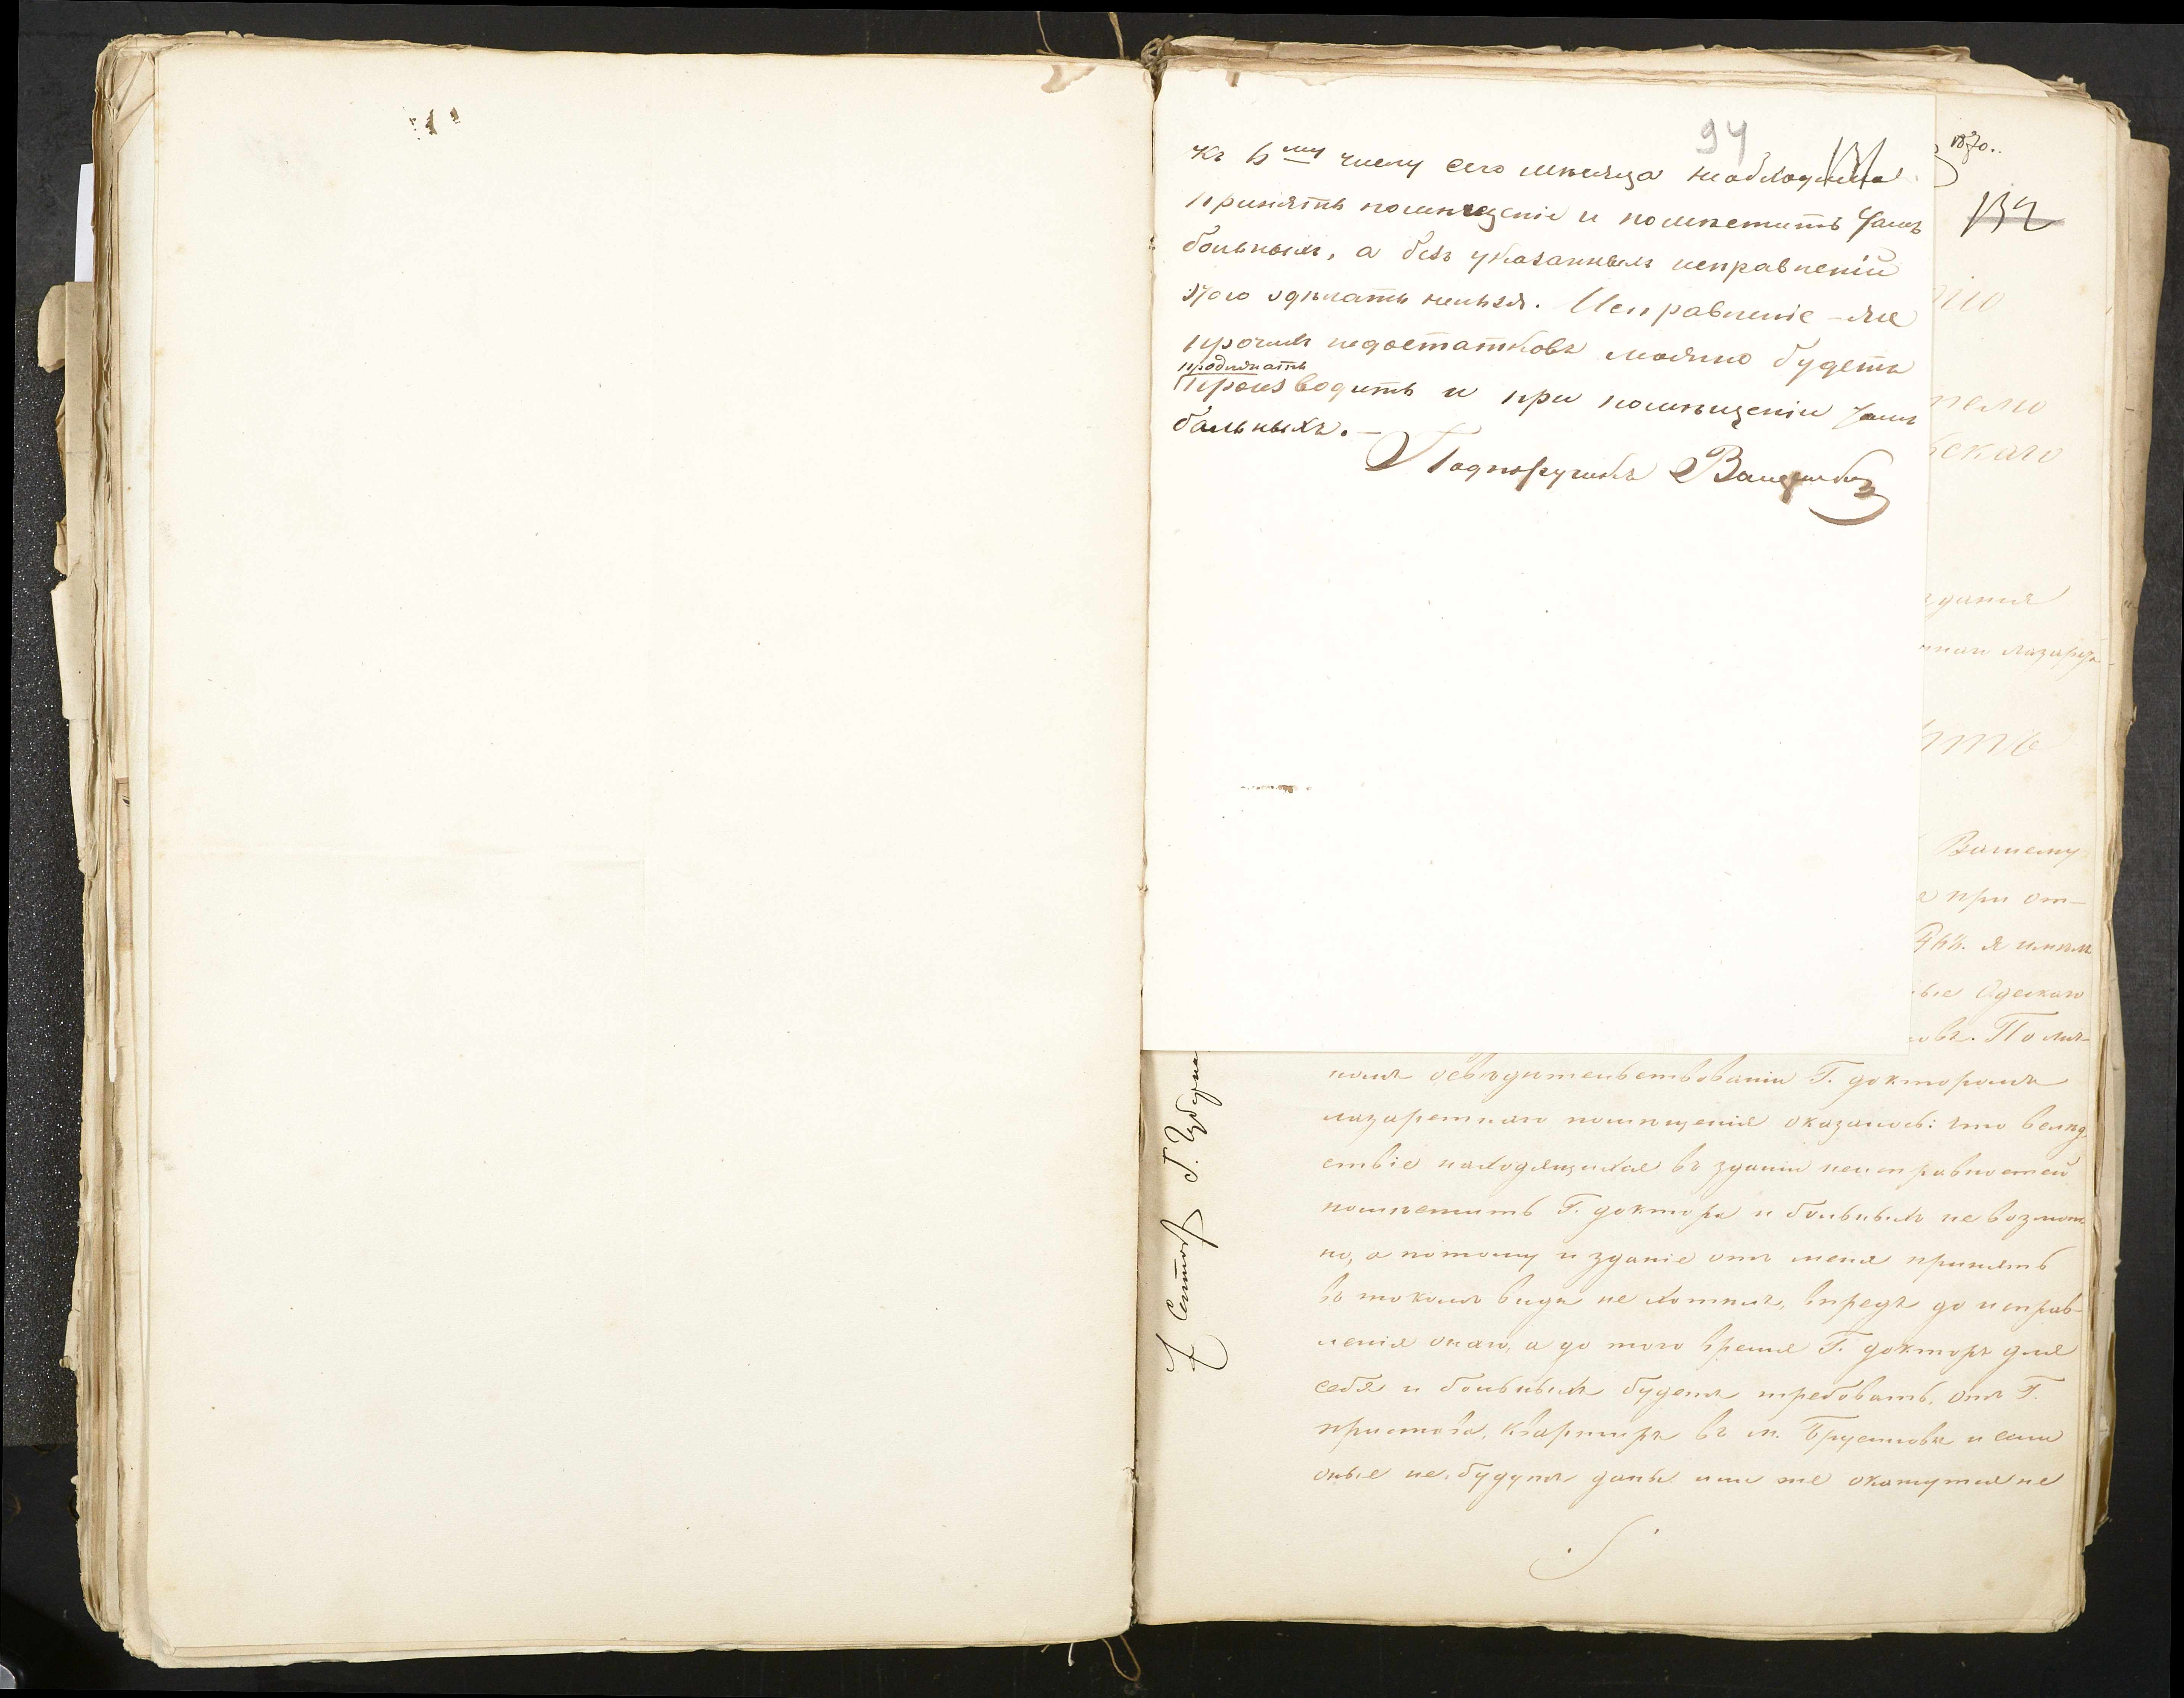 94
131
къ 6му числу сего мѣсяца необходимо
принять помѣщеніе и помѣстить тамъ
больныхъ, а безъ указанныхъ исправленій
этого сдѣлать нельзя. Исправленіе-же
прочихъ недостатковъ можно будетъ
продолжать
производить и при помѣщеніи тамъ
больныхъ.—
Подпоручикъ
1870..
132
скаго
зданія
лазаре-
Вашему
при от-
я имѣлъ
Одескаго
номъ освѣдительствованіи Г. докторомъ
лазаретнаго помѣщенія оказалось: что вслѣд
ствіе находящихся въ зданіи неисправностей
помѣстить Г. доктора и больныхъ не возмож
но, а потому и зданіе отъ меня принять
въ такомъ видѣ не хотѣлъ, впредь до исправ-
ленія онаго, а до того время Г. докторъ для
себя и больныхъ будетъ требовать, отъ Г.
пристава, квартиръ въ м. Брусиловѣ и если
оные не будутъ даны или же окажутся не